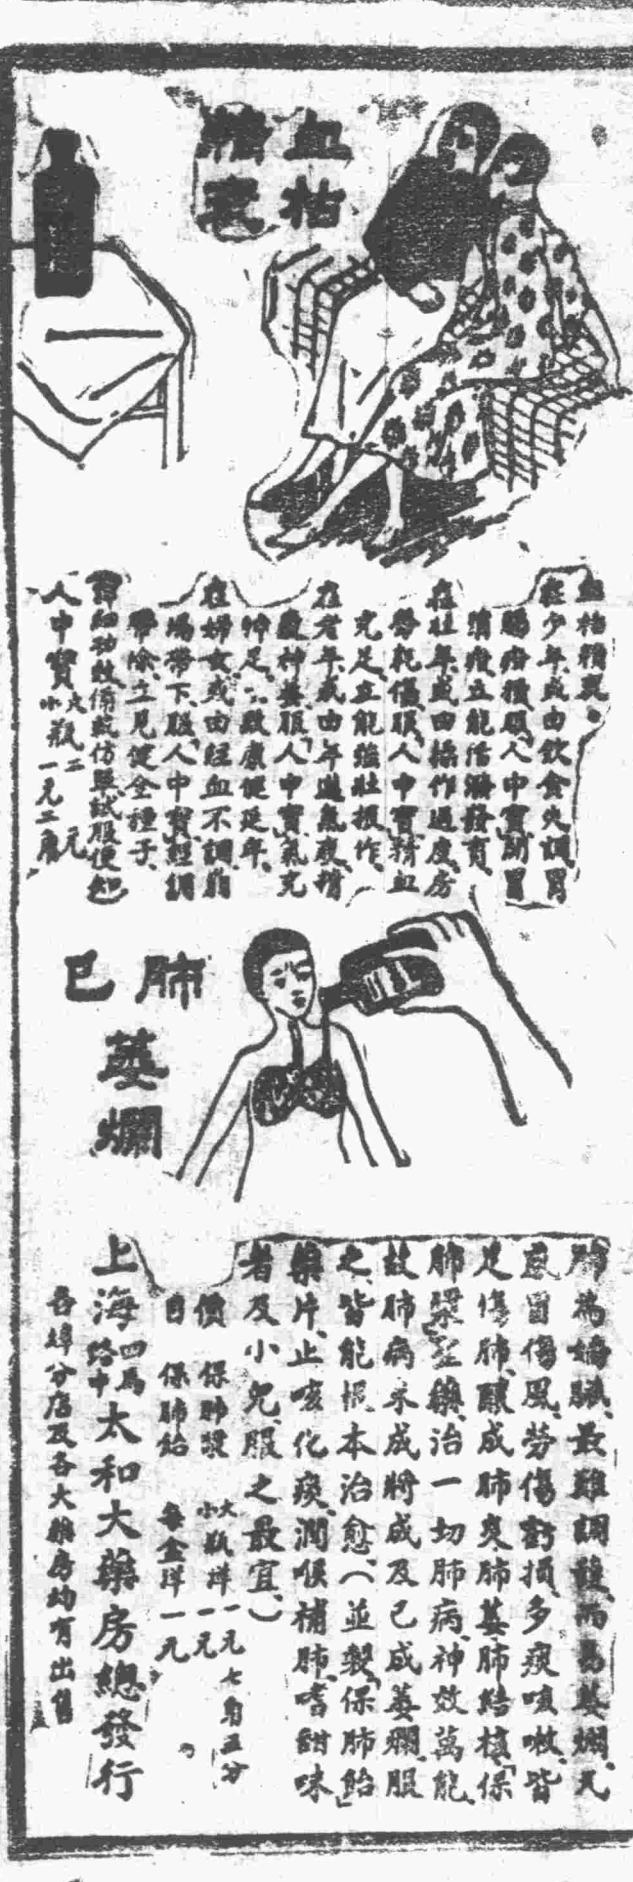 血枯
精衰
血枯精衰。
在少年、或由飲食失調、胃
腸疳積、服「人中寶」助胃
消疳、立能活潑發育、
在壯年、或由操作過度、房
勞耗傷、服「人中寶」精血
充足、立能強壯振作、
在老年、或由年邁氣衰、精
神萎、服「人中寶」氣充
神足、
在婦女、或由經血不調、
帶下、服「人中寶」經調
帶除、立見健全種子、
詳細功效、備載仿單、試服便知
人中寶 大瓶二元
小瓶一元二角
肺已
萎爛
肺為嬌臟、最難調護、而易萎爛、凡
感冒傷風、勞傷虧損、多痰咳嗽、皆
足傷肺、釀成肺炎肺萎肺結核、「保
肺漿」聖藥、治一切肺病、神效萬能、
故肺病未成將成及已成萎爛、服
之、皆能根本治愈、(並製「保肺飴」
藥片、止咳化痰、潤喉補肺、嗜甜味
者及小兒、服之最宜、)
價 保肺漿 大瓶洋一元七角五分
小瓶洋一元
目 保肺飴 每盒洋一元
上海四馬路中太和大藥房總發行
各埠分店及各大藥房均有出售